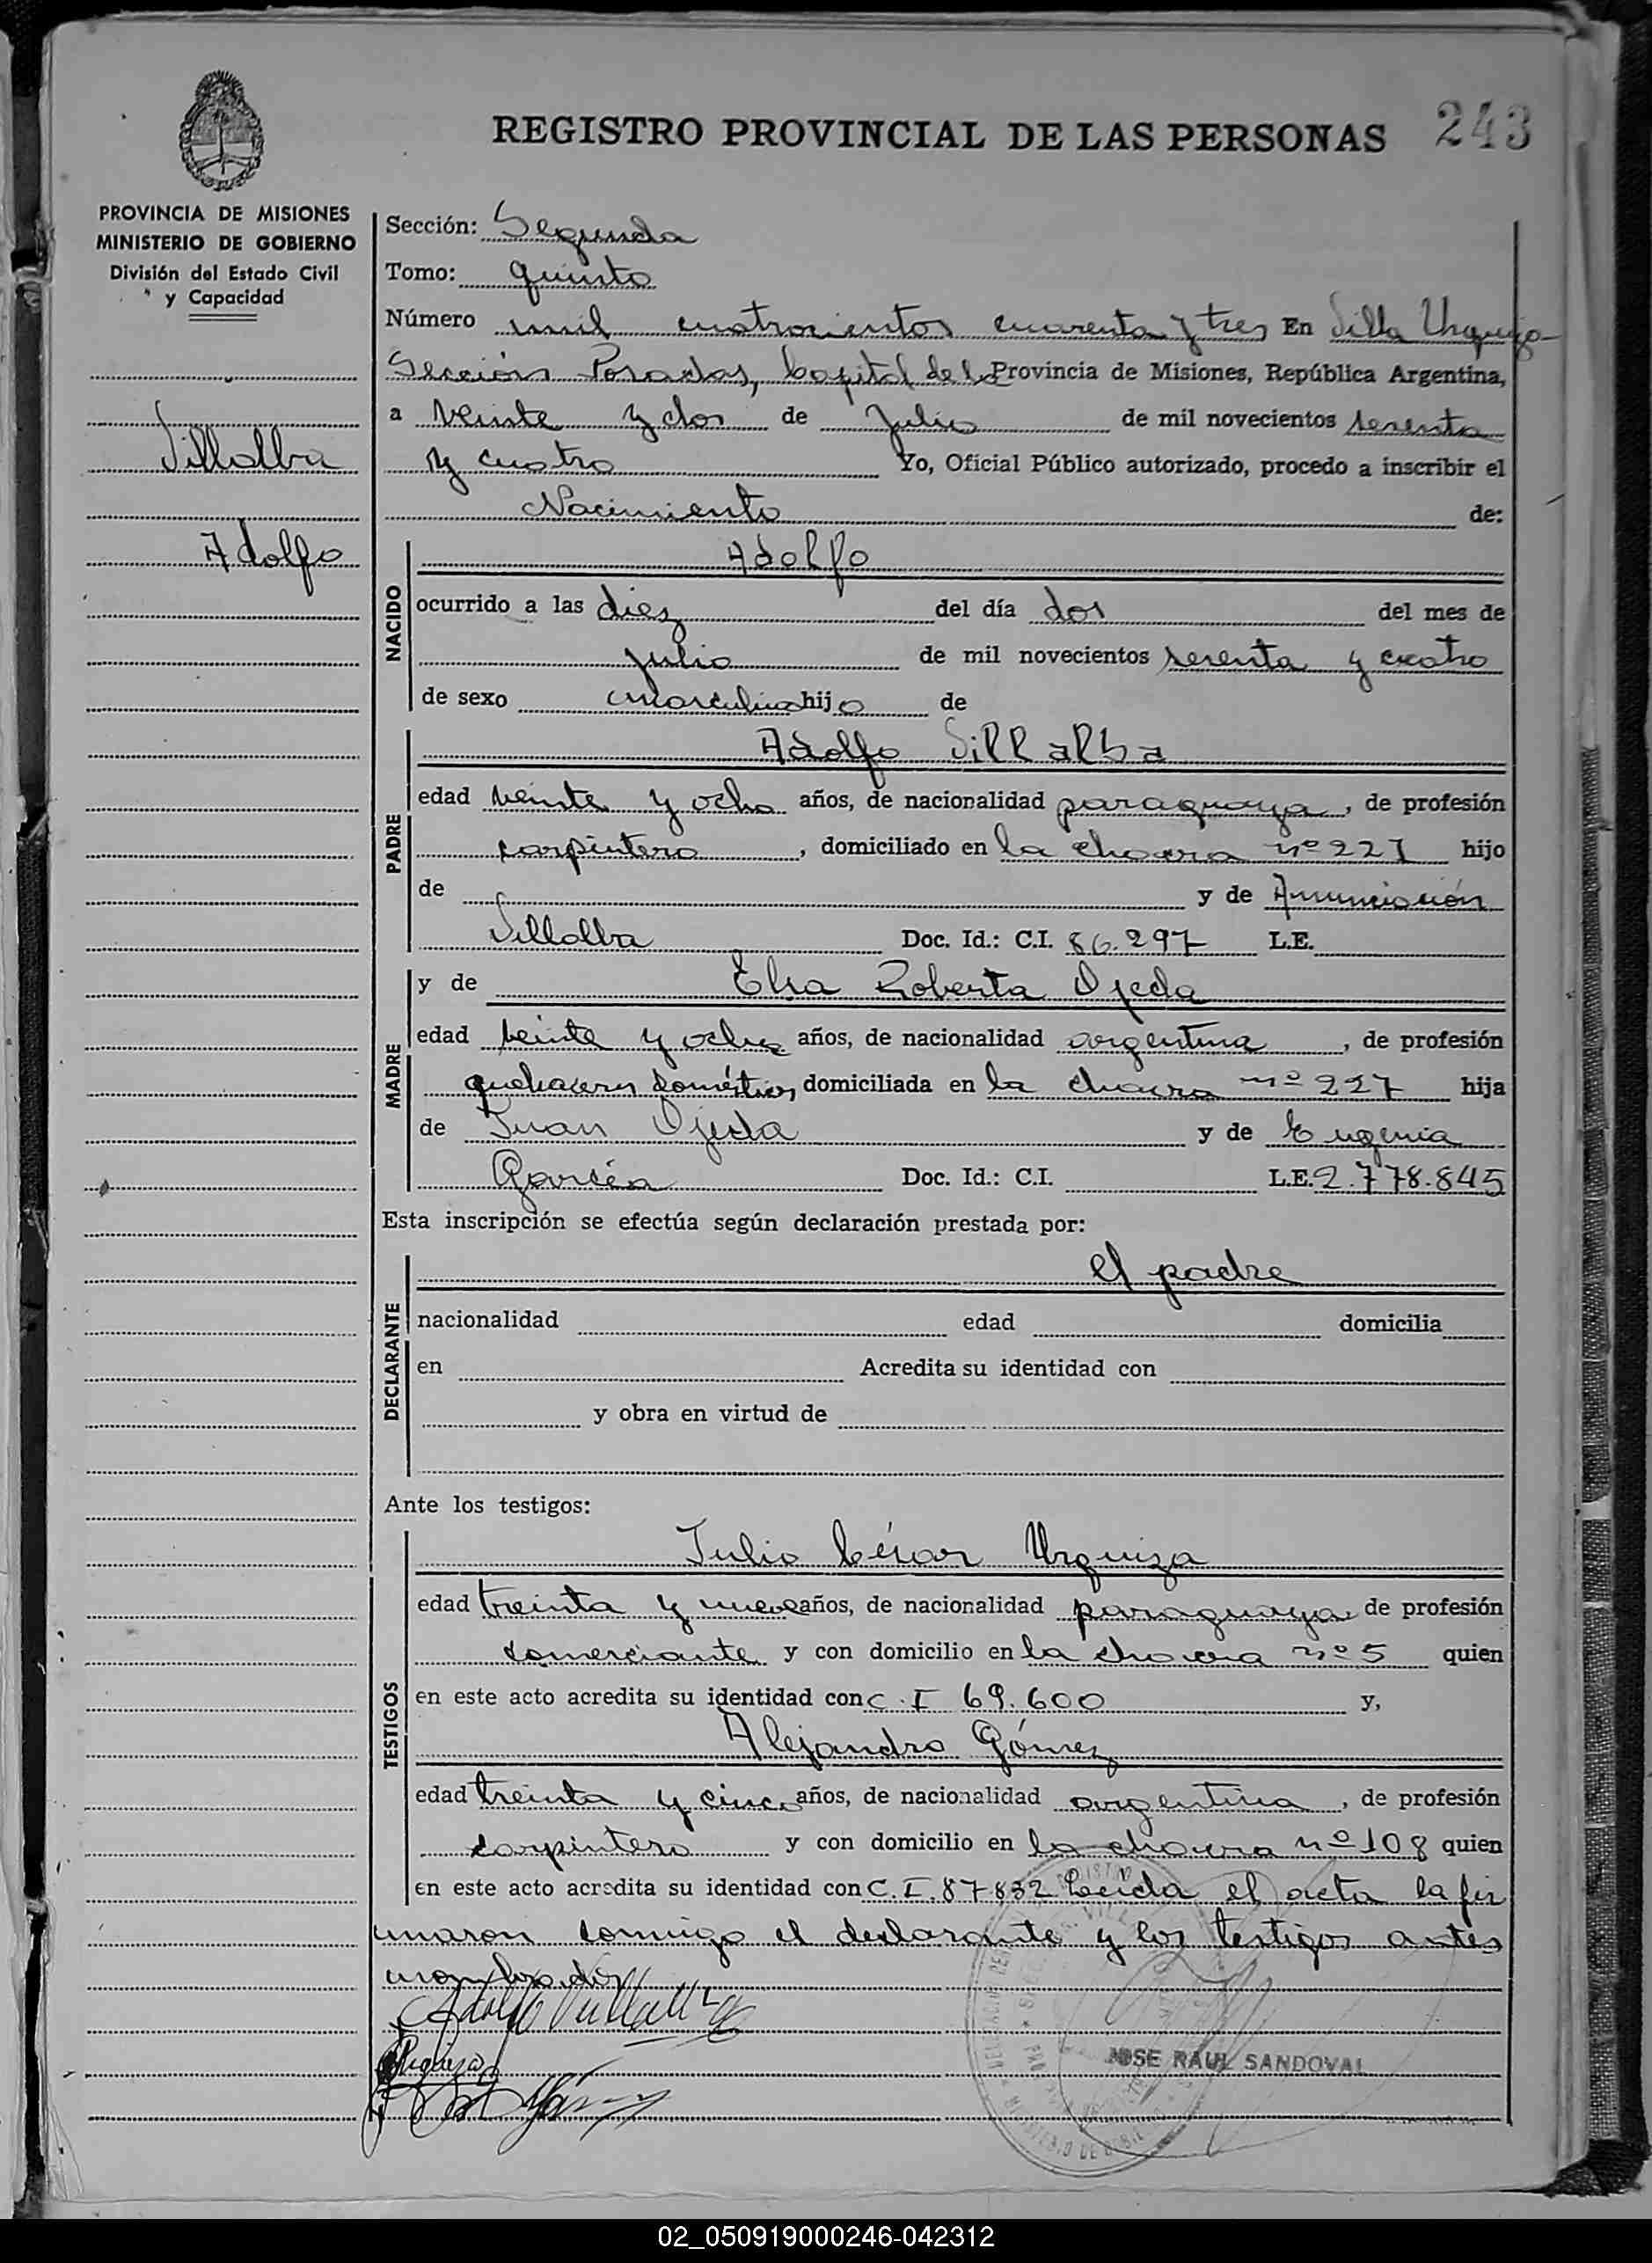 REGISTRO PROVINCIAL DE LAS PERSONAS 243
PROVINCIA DE MISIONES
MINISTERIO DE GOBIERNO
División del Estado Civil
y Capacidad
Villalba
Adolfo
Sección: Segunda
Tomo: quinto
Número mil cuatrocientos cuarenta y tres En Villa Urquiza
Sección Posadas, Capital de la Provincia de Misiones, República Argentina,
a veinte y dos de Julio de mil novecientos sesenta
y cuatro Yo, Oficial Público autorizado, procedo a inscribir el
Nacimiento de:
NACIDO
Adolfo
ocurrido a las diez del día dos del mes de
julio de mil novecientos sesenta y cuatro
de sexo masculino hijo de
PADRE
Adolfo Villalba
edad veinte y ocho años, de nacionalidad paraguaya, de profesión
carpintero, domiciliado en la chacra nº 227 hijo
de y de Anunciación
Villalba Doc. Id.: C.I. 86.297 L.E.
MADRE
y de Elsa Roberta Ojeda
edad veinte y ocho años, de nacionalidad argentina, de profesión
quehaceres domésticos domiciliada en la chacra nº 227 hija
de Juan Ojeda y de Eugenia
García Doc. Id.: C.I. L.E. 2.778.845
Esta inscripción se efectúa según declaración prestada por:
DECLARANTE
el padre
nacionalidad edad domicilia
en Acredita su identidad con
y obra en virtud de
Ante los testigos:
TESTIGOS
Julio César Urquiza
edad treinta y nueve años, de nacionalidad paraguaya de profesión
comerciante y con domicilio en la chacra nº 5 quien
en este acto acredita su identidad con C.I 69.600 y,
Alejandro Gómez
edad treinta y cinco años, de nacionalidad argentina, de profesión
carpintero y con domicilio en la chacra nº 108 quien
en este acto acredita su identidad con C.I. 87.832 Leída el acta la fir
maron conmigo el declarante y los testigos antes
Adolfo Villalba
Urquiza
JOSE RAUL SANDOVAL
02_050919000246-042312